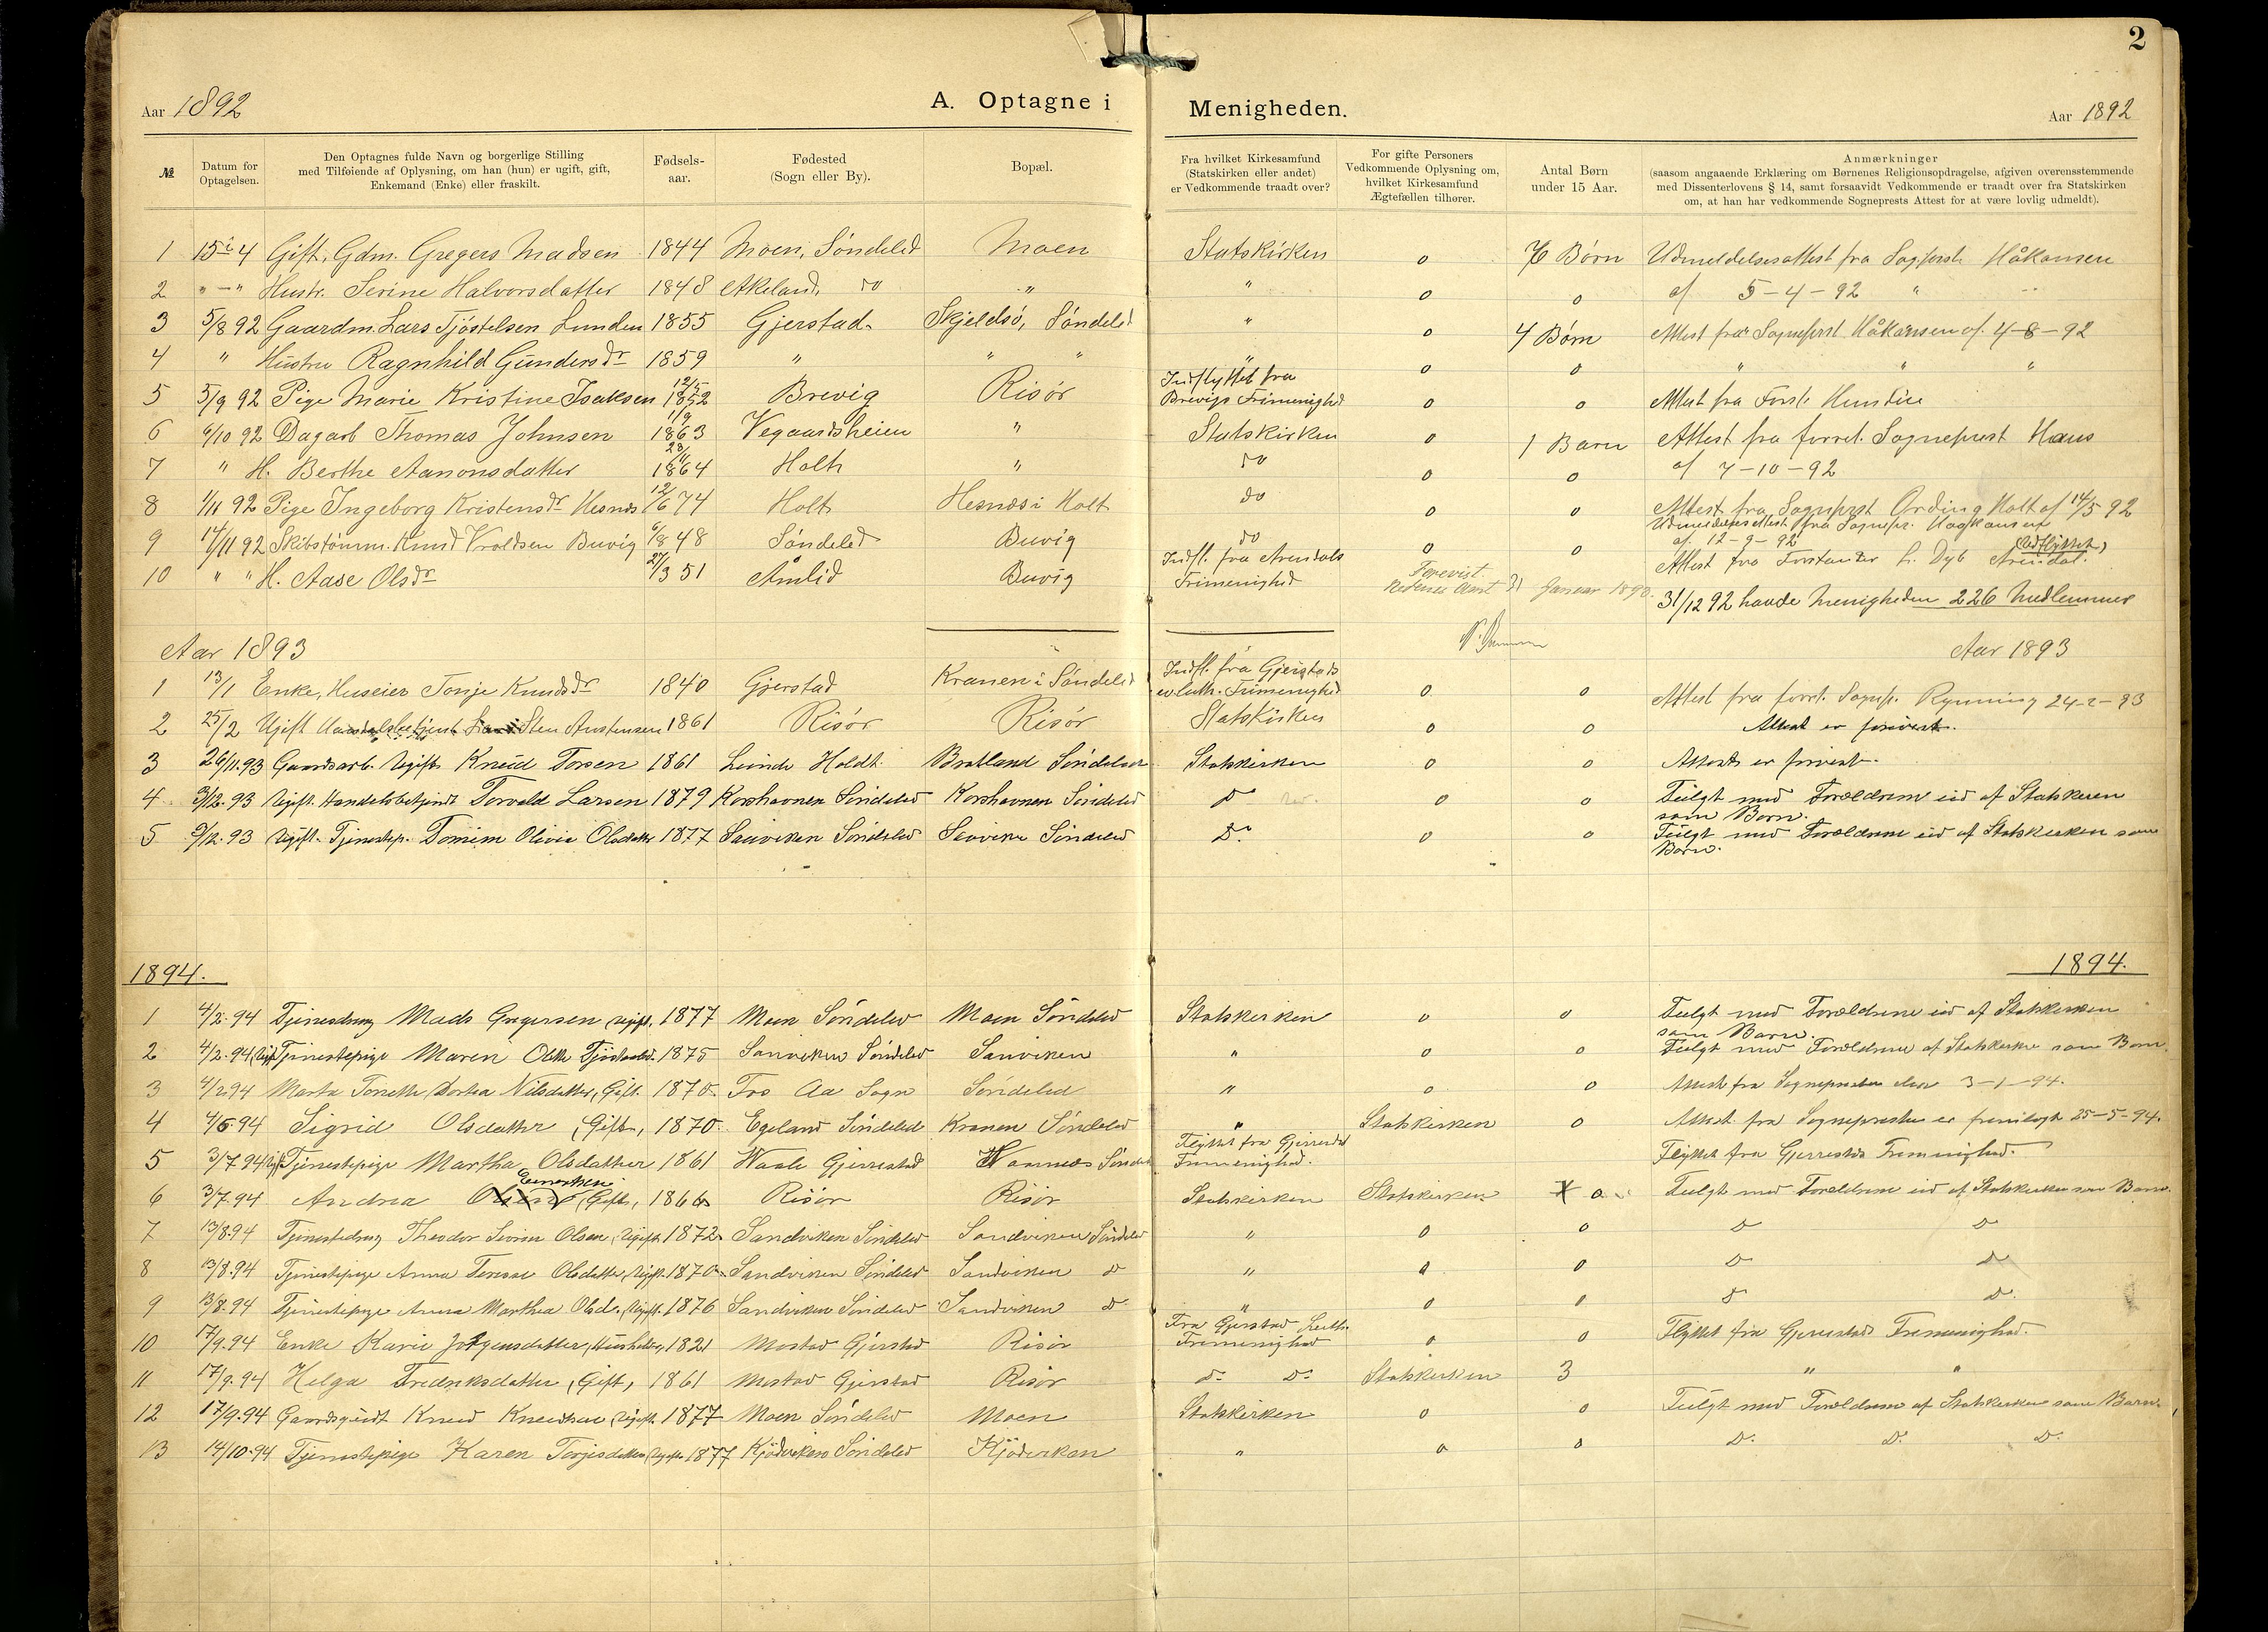 2
Aar 1892 A. Optagne i Menigheden. Aar 1892
№ Datum for Optagelsen. Den Optagnes fulde Navn og borgerlige Stilling med Tilføiende af Oplysning, om han (hun) er ugift, gift, Enkemand (Enke) eller fraskilt. Fødsels-aar. Fødested (Sogn eller By). Bopæl. Fra hvilket Kirkesamfund (Statskirken eller andet) er Vedkommende traadt over? For gifte Personers Vedkommende Oplysning om, hvilket Kirkesamfund Ægtefællen tilhører. Antal Børn under 15 Aar. Anmærkninger (saasom angaaende Erklæring om Børnenes Religionsopdragelse, afgiven overensstemmende med Dissenterlovens § 14, samt forsaavidt Vedkommende er traadt over fra Statskirken om, at han har vedkommende Sogneprests Attest for at være lovlig udmeldt).
1 15 4 Gift, Gdm. Gregers Madsen 1844 Moen, Söndeled Moen Statskirken 0 Børn Udmeldelsesattest fra Sogprest Håkonsen
2 " — " Hustr. Serine Halvorsdatter 1848 Akeland, do " " 0 0 af 5-4-92 "
3 5/8 92 Gaardm. Lars Tjöstelsen Lunden 1855 Gjerstad. Skjeldsö, Söndeled " 0 4 Børn Attest fra Sogneprst Håkonsen af 4-8-92
4 " Hustru Ragnhild Gundersdr 1859 " " " " 0 0 " " "
5 5/9 92 Pige Marie Kristine Isaksen 12/5 1852 Brevig Risör Indflyttet fra Brevigs Frimenighed 0 0 Attest fra Forst.
6 6/10 92 Dagarb Thomas Johnsen 1/9 1863 Vegaardsheien " Statskirken 0 1 Barn Attest fra forret. Sogneprest Haus
7 " H. Berthe Aanonsdatter 28/11 1864 Holt " do 0 0 af 7-10-92
8 1/11 92 Pige Ingeborg Kristensdr Hesnes 12/6 74 Holt Hesnæs i Holt do 0 0 Attest fra Sogneprst Ording Holt af 14/5 92
9 14/11 92 Skibstömm. Knud Vroldsen Buvig 6/8 48 Söndeled Buvig do 0 0 Udmeldelsesattest fra Sognepr. Haakonsen af 12-9-92
10 " " H. Aase Olsdr 27/3 51 Åmlid Buvig Indfl. fra Arendals Frimenighed Attest fra Forstander Dyb Arendal. (Udflyttet)
Forevist. Nedenes Amt 31 Januar 1893.
31/12 92 havde Menigheden 226 Medlemmer
Aar 1893 Aar 1893
1 13/1 Enke, Huseier Tonje Knudsdr 1840 Gjerstad Kranen i Söndeled Indfl. fra Gjerstads ev. luth. Frimenighed 0 0 Attest fra forst. Sognepr. Rynning 24-2-93
2 25/2 Ugift Handelsbetjent Sten Austensen 1861 Risör Risör Statskirken 0 0 Attest er forevist.
3 26/11.93 Gaardsarb. Ugift Knud Torsen 1861 Holdt Bratland Söndeled Statskirken 0 0 Attest er forevist.
4 3/12.93 Ugift. Handelsbetjendt Torvald Larsen 1879 Korshavnen Söndeled Korshavnen Söndeled Do 0 0 Fulgt med Forældrene ud af Statskirken som Barn.
5 9/12.93 Ugift. Tjenestep. Olivia Olsdatter 1877 Söndeled Söndeled Do 0 0 Fulgt med Forældrene ud af Statskirken som Barn.
1894. 1894.
1 4/2.94 Tjenesdreng Mads Gregersen, Ugift, 1877 Moen Söndeled Moen Söndeled Statskirken 0 0 Fulgt med Forældrene ud af Statskirken som Barn.
2 4/2.94 Ugift Tjenestepige Maren 1875 Sanviken Söndeled Sanviken " 0 0 Fulgt med Forældrene af Statskirken som Barn.
3 4/2.94 Marta Nilsdatter, Gift. 1870. Sogn Söndeled " 0 0 Attest fra Sognepresten 3-1-94.
4 4/5.94 Sigrid Olsdatter, Gift, 1870. Egeland Söndeled Kranen Söndeled " Statskirken 0 Attest fra Sognepresten er fremlagt 25-5-94.
5 3/7.94 Ugift Tjenestepige Martha Olsdatter 1861 Gjerrestad Söndeled Flyttet fra Gjerrestad Frimenighed. Flyttet fra Gjerrestads Frimenighed.
6 3/7.94 Andrea, Gift, 1866 Risör Risör Statskirken Statskirken 0 Fulgt med Forældrene ud af Statskirken som Barn.
7 13/8.94 Tjenestedreng Theodor Olsen, Ugift. 1872. Sandviken Söndeled Sandviken Söndeled " 0 0 Do Do
8 13/8.94 Tjenestepige Anna Olsdatter, Ugift. 1870. Sandviken Söndeled Sandviken do " 0 0 Do Do
9 13/8.94 Tjenestepige Anna Martha Olsd., Ugift. 1876 Sandviken Söndeled Sandviken Do " 0 0 Do Do.
10 17/9.94 Enke Karie Jörgensdatter, 1821 Mostad Gjerstad Risör Fra Gjerstad Luth. Frimenighed 0 0 Flyttet fra Gjerrestads Frimenighed.
11 17/9.94 Helga Fredriksdatter, Gift, 1861 Mostad Gjerstad Risör Do Do Statskirken 3 " "
12 17/9.94 Gaardsgut Knud Knudsen Ugift. 1877 Moen Söndeled Moen Statskirken 0 0 Fulgt med Forældrene af Statskirken som Barn.
13 14/10.94 Tjenestepige Karen Terjesdatter, Ugift. 1877 Kjödviken Söndeled Kjödviken " 0 0 Do. Do. Do.